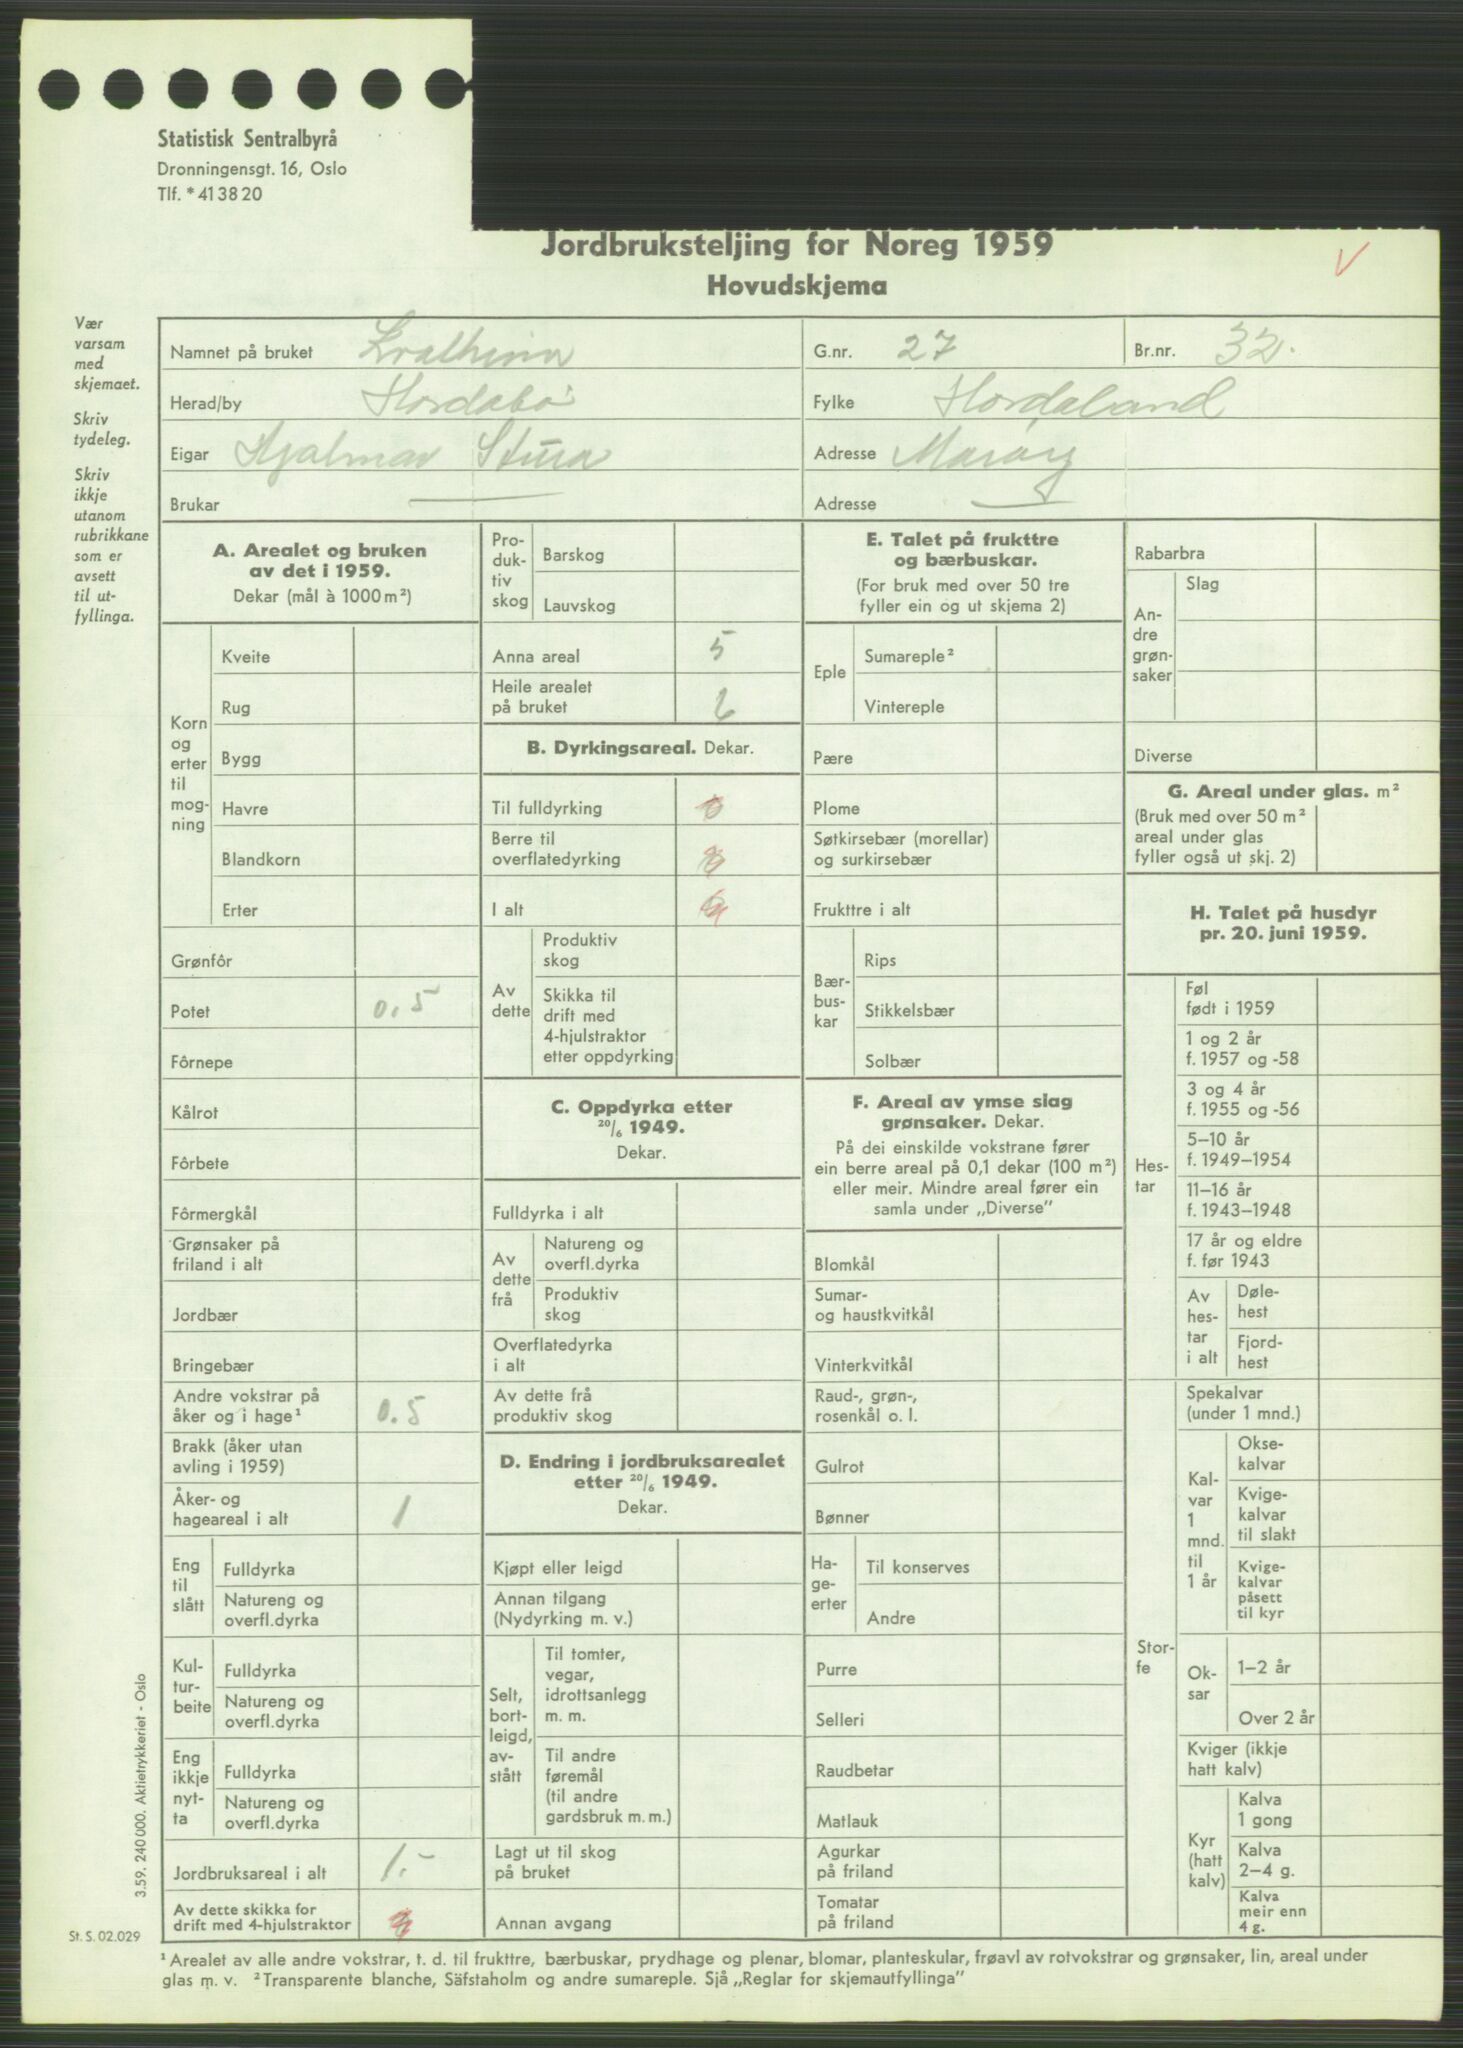 Statistisk Sentralbyrå
Dronningensgt. 16, Oslo
Tlf. * 41 38 20
Jordbruksteljing for Noreg 1959
Hovudskjema
Vær
varsam
med
skjemaet.
Skriv
tydeleg.
Skriv
ikkje
utanom
rubrikkane
som er
avsett
til ut-
fyllinga.
Namnet på bruket
G.nr. 27
Br.nr. 32.
Herad/by Hordabø
Fylke Hordaland
Eigar Hjalmar Stura
Adresse Marøy
Brukar —
Adresse —
A. Arealet og bruken
av det i 1959.
Dekar (mål à 1000 m²)
Korn
og
erter
til
mog-
ning
Kveite
Rug
Bygg
Havre
Blandkorn
Erter
Grønfôr
Potet 0,5
Fôrnepe
Kålrot
Fôrbete
Fôrmergkål
Grønsaker på
friland i alt
Jordbær
Bringebær
Andre vokstrar på
åker og i hage¹ 0.5
Brakk (åker utan
avling i 1959)
Åker- og
hageareal i alt 1
Eng
til
slått
Fulldyrka
Natureng og
overfl.dyrka
Kul-
tur-
beite
Fulldyrka
Natureng og
overfl.dyrka
Eng
ikkje
nyt-
ta
Fulldyrka
Natureng og
overfl.dyrka
Jordbruksareal i alt 1.-
Av dette skikka for
drift med 4-hjulstraktor
Pro-
duk-
tiv
skog
Barskog
Lauvskog
Anna areal 5
Heile arealet
på bruket 6
B. Dyrkingsareal. Dekar.
Til fulldyrking
Berre til
overflatedyrking
I alt
Av
dette
Produktiv
skog
Skikka til
drift med
4-hjulstraktor
etter oppdyrking
C. Oppdyrka etter
20/6 1949.
Dekar.
Fulldyrka i alt
Av
dette
frå
Natureng og
overfl.dyrka
Produktiv
skog
Overflatedyrka
i alt
Av dette frå
produktiv skog
D. Endring i jordbruksarealet
etter 20/6 1949.
Dekar.
Kjøpt eller leigd
Annan tilgang
(Nydyrking m. v.)
Selt,
bort-
leigd,
av-
stått
Til tomter,
vegar,
idrottsanlegg
m. m.
Til andre
føremål
(til andre
gardsbruk m. m.)
Lagt ut til skog
på bruket
Annan avgang
E. Talet på frukttre
og bærbuskar.
(For bruk med over 50 tre
fyller ein og ut skjema 2)
Eple
Sumareple²
Vintereple
Pære
Plome
Søtkirsebær (morellar)
og surkirsebær
Frukttre i alt
Bær-
bus-
kar
Rips
Stikkelsbær
Solbær
F. Areal av ymse slag
grønsaker. Dekar.
På dei einskilde vokstrane fører
ein berre areal på 0,1 dekar (100 m²)
eller meir. Mindre areal fører ein
samla under „Diverse”
Blomkål
Sumar-
og haustkvitkål
Vinterkvitkål
Raud-, grøn-,
rosenkål o. l.
Gulrot
Bønner
Ha-
ge-
erter
Til konserves
Andre
Purre
Selleri
Raudbetar
Matlauk
Agurkar
på friland
Tomatar
på friland
Rabarbra
An-
dre
grøn-
saker
Slag
Diverse
G. Areal under glas. m²
(Bruk med over 50 m²
areal under glas
fyller også ut skj. 2)
H. Talet på husdyr
pr. 20. juni 1959.
Hes-
tar
Føl
født i 1959
1 og 2 år
f. 1957 og -58
3 og 4 år
f. 1955 og -56
5–10 år
f. 1949–1954
11–16 år
f. 1943–1948
17 år og eldre
f. før 1943
Av
hes-
tar
i alt
Døle-
hest
Fjord-
hest
Stor-
fe
Spekalvar
(under 1 mnd.)
Kal-
var
1
mnd.
til
1 år
Okse-
kalvar
Kvige-
kalvar
til slakt
Kvige-
kalvar
påsett
til kyr
Ok-
sar
1–2 år
Over 2 år
Kviger (ikkje
hatt kalv)
Kyr
(hatt
kalv)
Kalva
1 gong
Kalva
2–4 g.
Kalva
meir enn
4 g.
3.59. 240 000. Aktietrykkeriet - Oslo
St. S. 02.029
¹ Arealet av alle andre vokstrar, t. d. til frukttre, bærbuskar, prydhage og plenar, blomar, planteskular, frøavl av rotvokstrar og grønsaker, lin, areal under
glas m. v. ² Transparente blanche, Säfstaholm og andre sumareple. Sjå „Reglar for skjemautfyllinga”